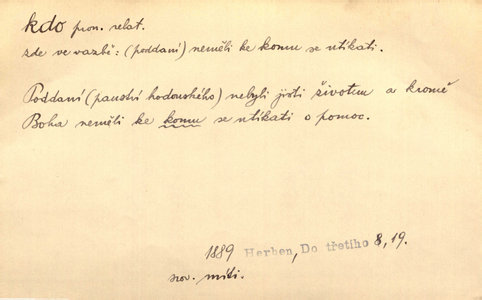 kdo pron. relat.
zde ve vazbě: (poddaní) neměli ke komu se utíkati.
Poddaní (panství hodonského) nebyli jisti životem a kromě
Boha neměli ke komu se utíkati o pomoc.
1889 Herben, Do třetího 8, 19.
srov. míti.